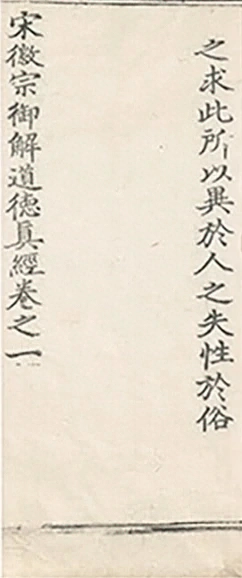 之求此所以異於人之失性於俗
宋徽宗御解道德真經卷之一